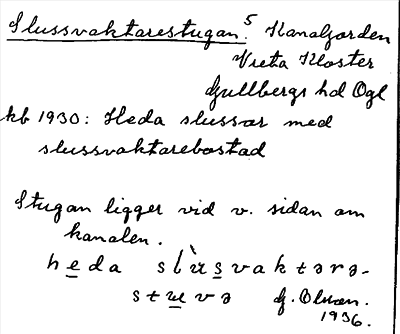 Slussvaktarestugan.5 Kanaljorden
Vreta Kloster
Gullbergs hd Ögl
kb 1930: Heda slussar med
slussvaktarebostad
Stugan ligger vid v. sidan om
kanalen.
heda slùsvaktərə-
stuvə G. Olson.
1936.